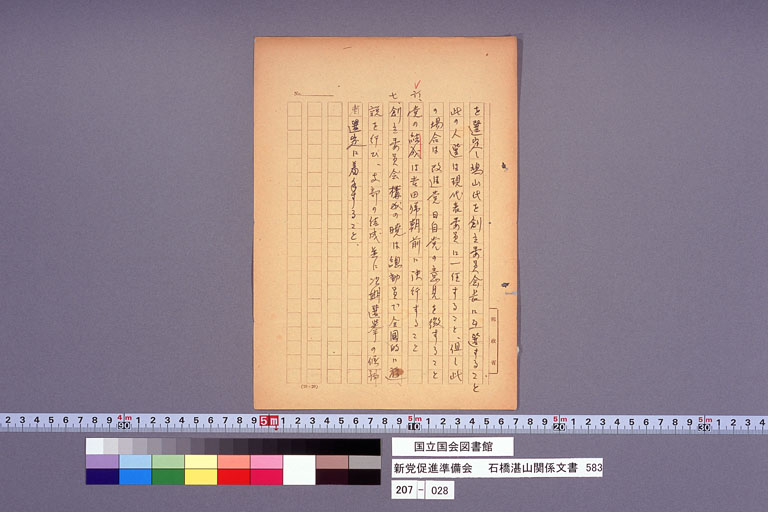 を選定し鳩山氏を創立委員会長に互選すること
此の人選は現代表委員に一任すること、但し此
の場合は改進党日自党の意見を徴すること
六、党の結成は吉田帰朝前に決行すること
七、創立委員会構成の暁は総動員で全國的に遊
説を行ひ、支部の結成並に次期選挙の候補
者選定に着手すること、
No.
(10—20)
国立国会図書館
新党促進準備会 石橋湛山関係文書 583
207 - 028